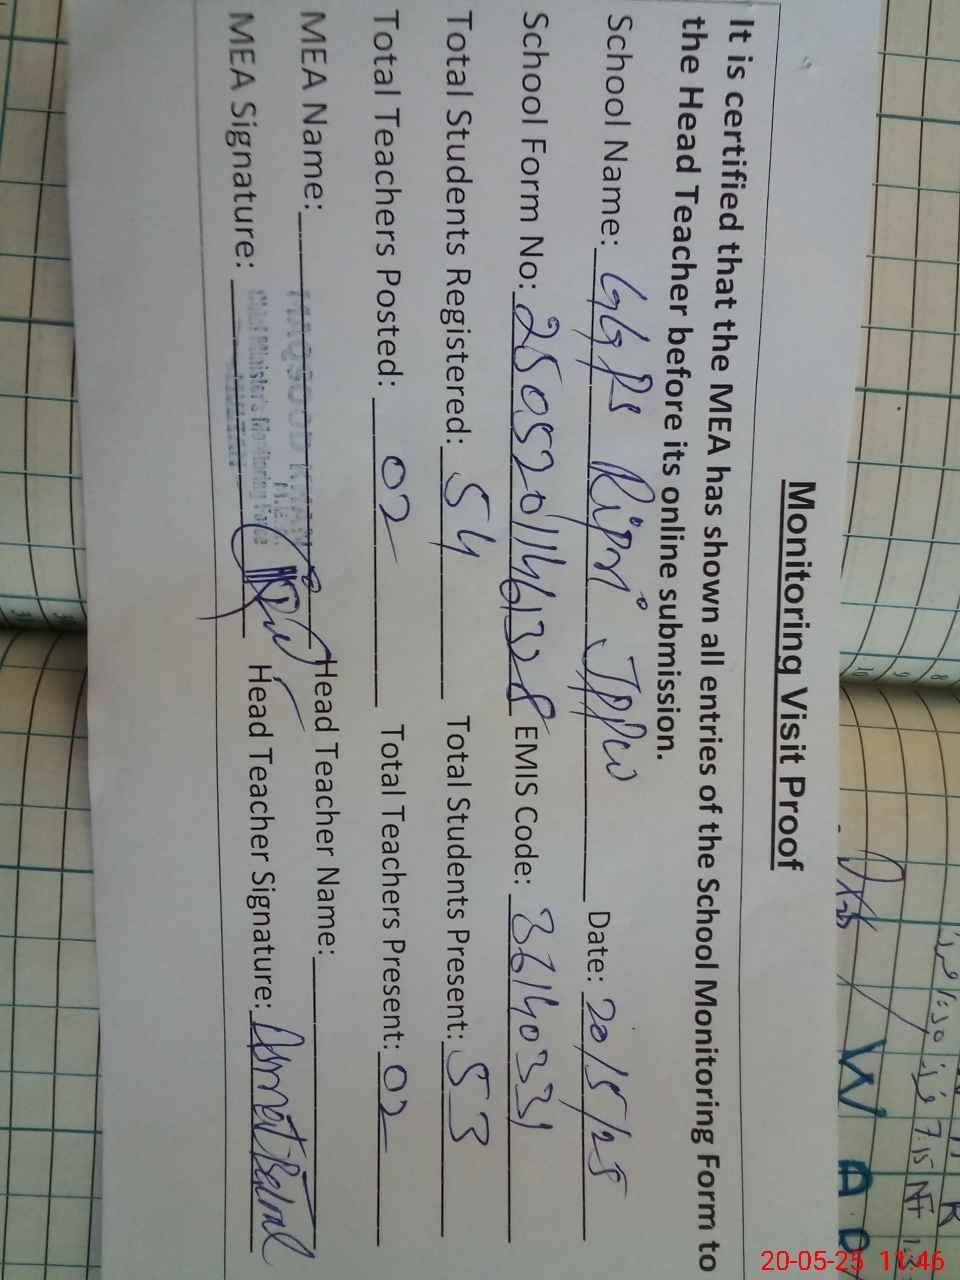 Monitoring Visit Proof
It is certified that the MEA has shown all entries of the School Monitoring Form to
the Head Teacher before its online submission.
School Name: GGPS Ripri Date: 20/5/25
School Form No: 25052011461328 EMIS Code: 36140331
Total Students Registered: 54 Total Students Present: 53
Total Teachers Posted: 02 Total Teachers Present: 02
MEA Name: MAQSOOD KHAN Head Teacher Name:
Chief Minister's Monitoring Force
MEA Signature: Head Teacher Signature: Asmat Batool
W A
7.15
20-05-25 11:46